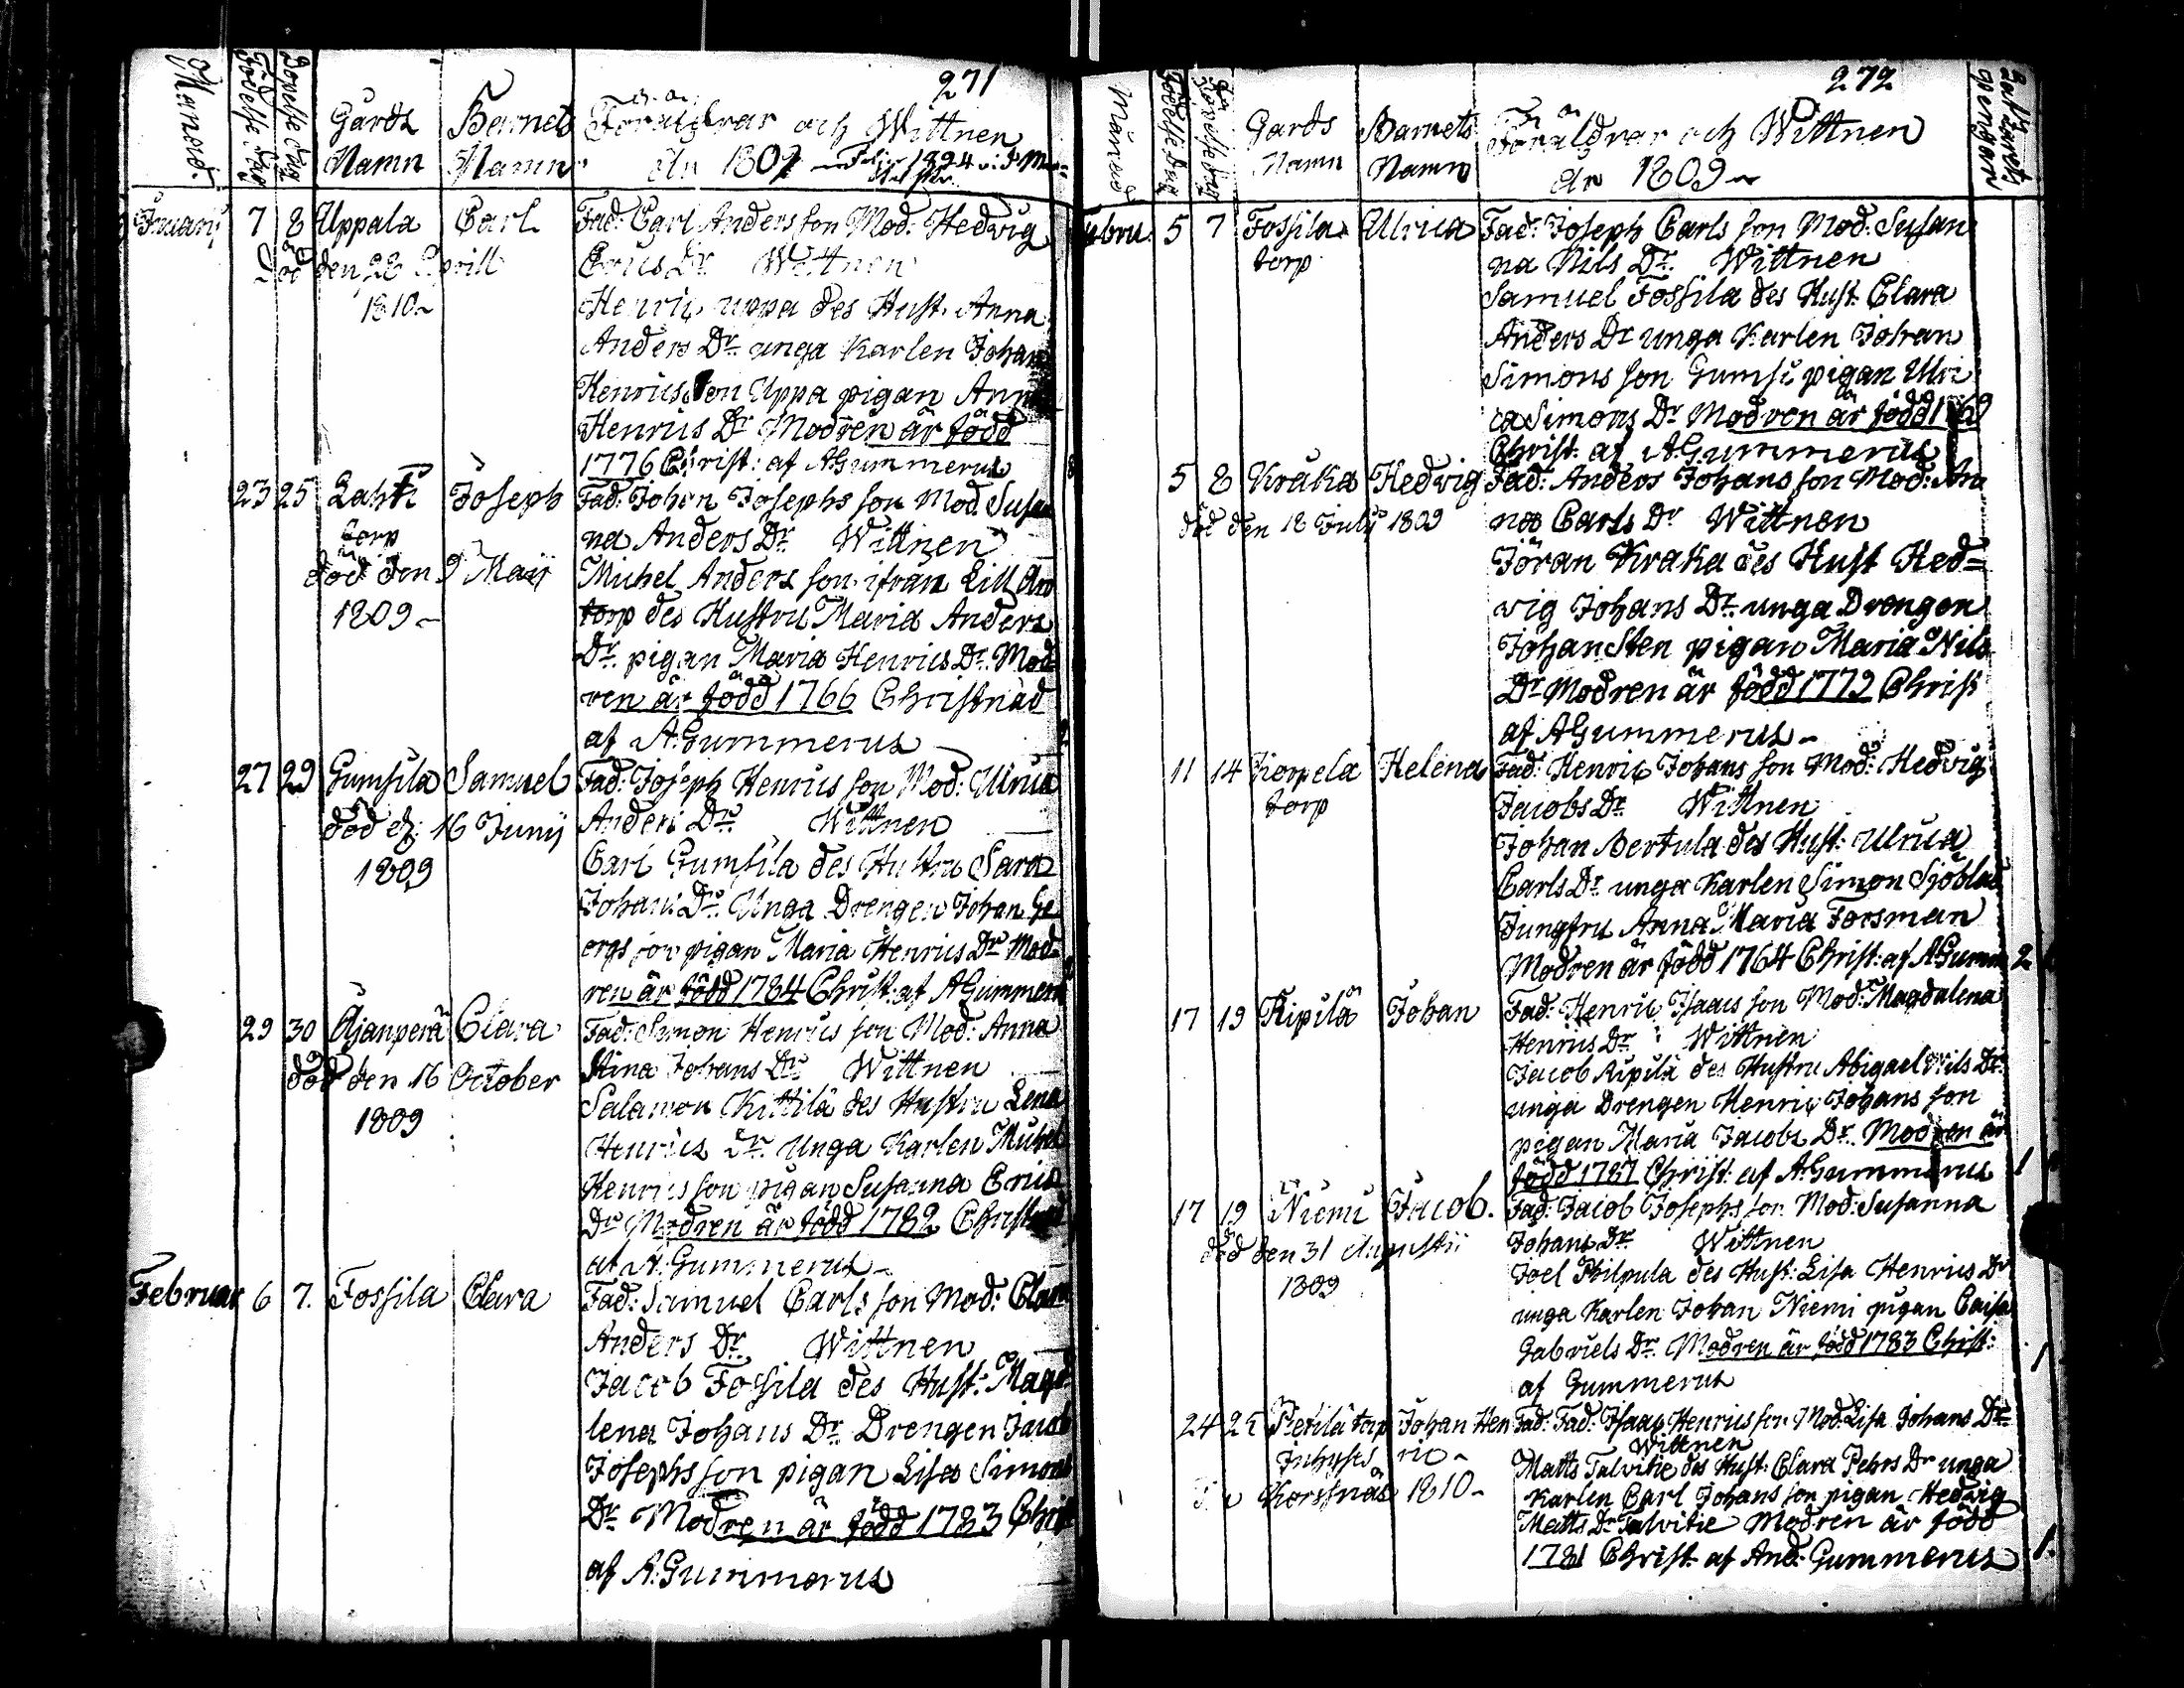 271
Månad.
Födelse dag
Döpelse dag
Gårds Namn
Barnets Namn
Föräldrar och Wittnen
år 1809
Januarii 7 8 Uppala Carl Fad: Carl Anders son Mod: Hedvig
död den 28 Aprill Erics Dr Wittnen
1810 Henric uppa des Hust. Anna
Anders Dr unga Karlen Johan
Henrics son Uppa pigan Anna
Henrics Dr Modren är född
1776 Christ: af AGummerus
23 25 Lahti Joseph Fad: Johan Josephs son Mod. Susan
torp na Anders Dr Wittnen
död den 9 Maij Michel Anders son ifrån Lill
1809 torp des Hustru Maria Anders
Dr pigan Maria Henrics Dr. Mod
ren är född 1766 Christnad
af A:Gummerus
27 29 Gumsila Samuel Fad: Joseph Henrics son Mod: Ulrica
död d: 16 Junij Anders Dr Wittnen
1809 Carl Gumsila des Hustru Sara
Johans Dr Unga Drengen Johan Ge
orgs son pigan Maria Henrics Dr Mod
ren är född 1784 Christ: af AGummerus
29 30 Äjänperä Clara Fad: Simon Henrics son Mod: Anna
död den 16 October Stina Johans Dr Wittnen
1809 Salamon Kuttila des Hustru Lena
Henrics Dr. Unga Karlen Michel
Henrics son pigan Susanna Erics
Dr Modren är född 1782 Christnad
af A:Gummerus
Februar 6 7. Fossila Clara Fad: Samuel Carls son Mod: Clara
Anders Dr. Wittnen
Jacob Fossila des Hust: Magda
lena Johans Dr Drengen Jacob
Josephs son pigan Lisa Simons
Dr Modren är född 1783 Christ
af A:Gummerus
272
Månad
Födelse dag
Döpelse dag
Gårds Namn
Barnets Namn
Föräldrar och Wittnen
år 1809
Februar 5 7 Fossila Ulrica Fad: Joseph Carls son Mod: Susan
torp na Nils Dr. Wittnen
Samuel Fossila des Hust. Clara
Anders Dr unga Karlen Johan
Simons son Gumsi pigan Ulri
ca Simons Dr Modren är född
Christ: af AGummerus
5 8 Kråka Hedvig Fad: Anders Johans son Mod: An
död den 18 Julij 1809 na Carls Dr Wittnen
Jöran Kraka des Hust Hed=
vig Johans Dr. unga Drengen
Johan Sten pigan Maria Nils
Dr Modren är född 1772 Christ
af AGummerus
11 14 Korpela Helena Fad: Henric Johans son Mod: Hedvig
torp Jacobs Dr Wittnen
Johan Bertula des Hust: Ulrica
Carls Dr. unga Karlen Simon Sjöblad
Jungfru Anna Maria Forsman
Modren är född 1764 Christ: af AGumm 2
17 19 Kipilä Johan Fad: Henric Isaacs son Mod: Magdalena
Henrics Dr Wittnen
Jacob Kipilä des Hustru Abigael Nils Dr
unga Drengen Henric Johans son
pigan Maria Jacobs Dr. Modren är
född 1787 Christ: af A:Gummerus 1
17 19 Niemi Jacob. Fad: Jacob Josephs son Mod: Susanna
död den 31 Augustii Johans Dr Wittnen
1809 Joel Philpula des Hust: Lisa Henrics Dr
unga Karlen Johan Niemi pigan Caisa
Gabriels Dr. Modren är född 1783 Christ:
af Gummerus 1
24 25 Pietilä torp Johan Hen Fad: Fad: Isaac Henrics son Mod: Lisa Johans Dr
ric Wittnen
Matts Talvitie des Hust: Clara Pehrs Dr unga
Korssnäs 1810 Karlen Carl Johans son pigan Hedvig
Matts Dr Talvitie Modren är född
1781 Christ: af And: Gummerus 1.